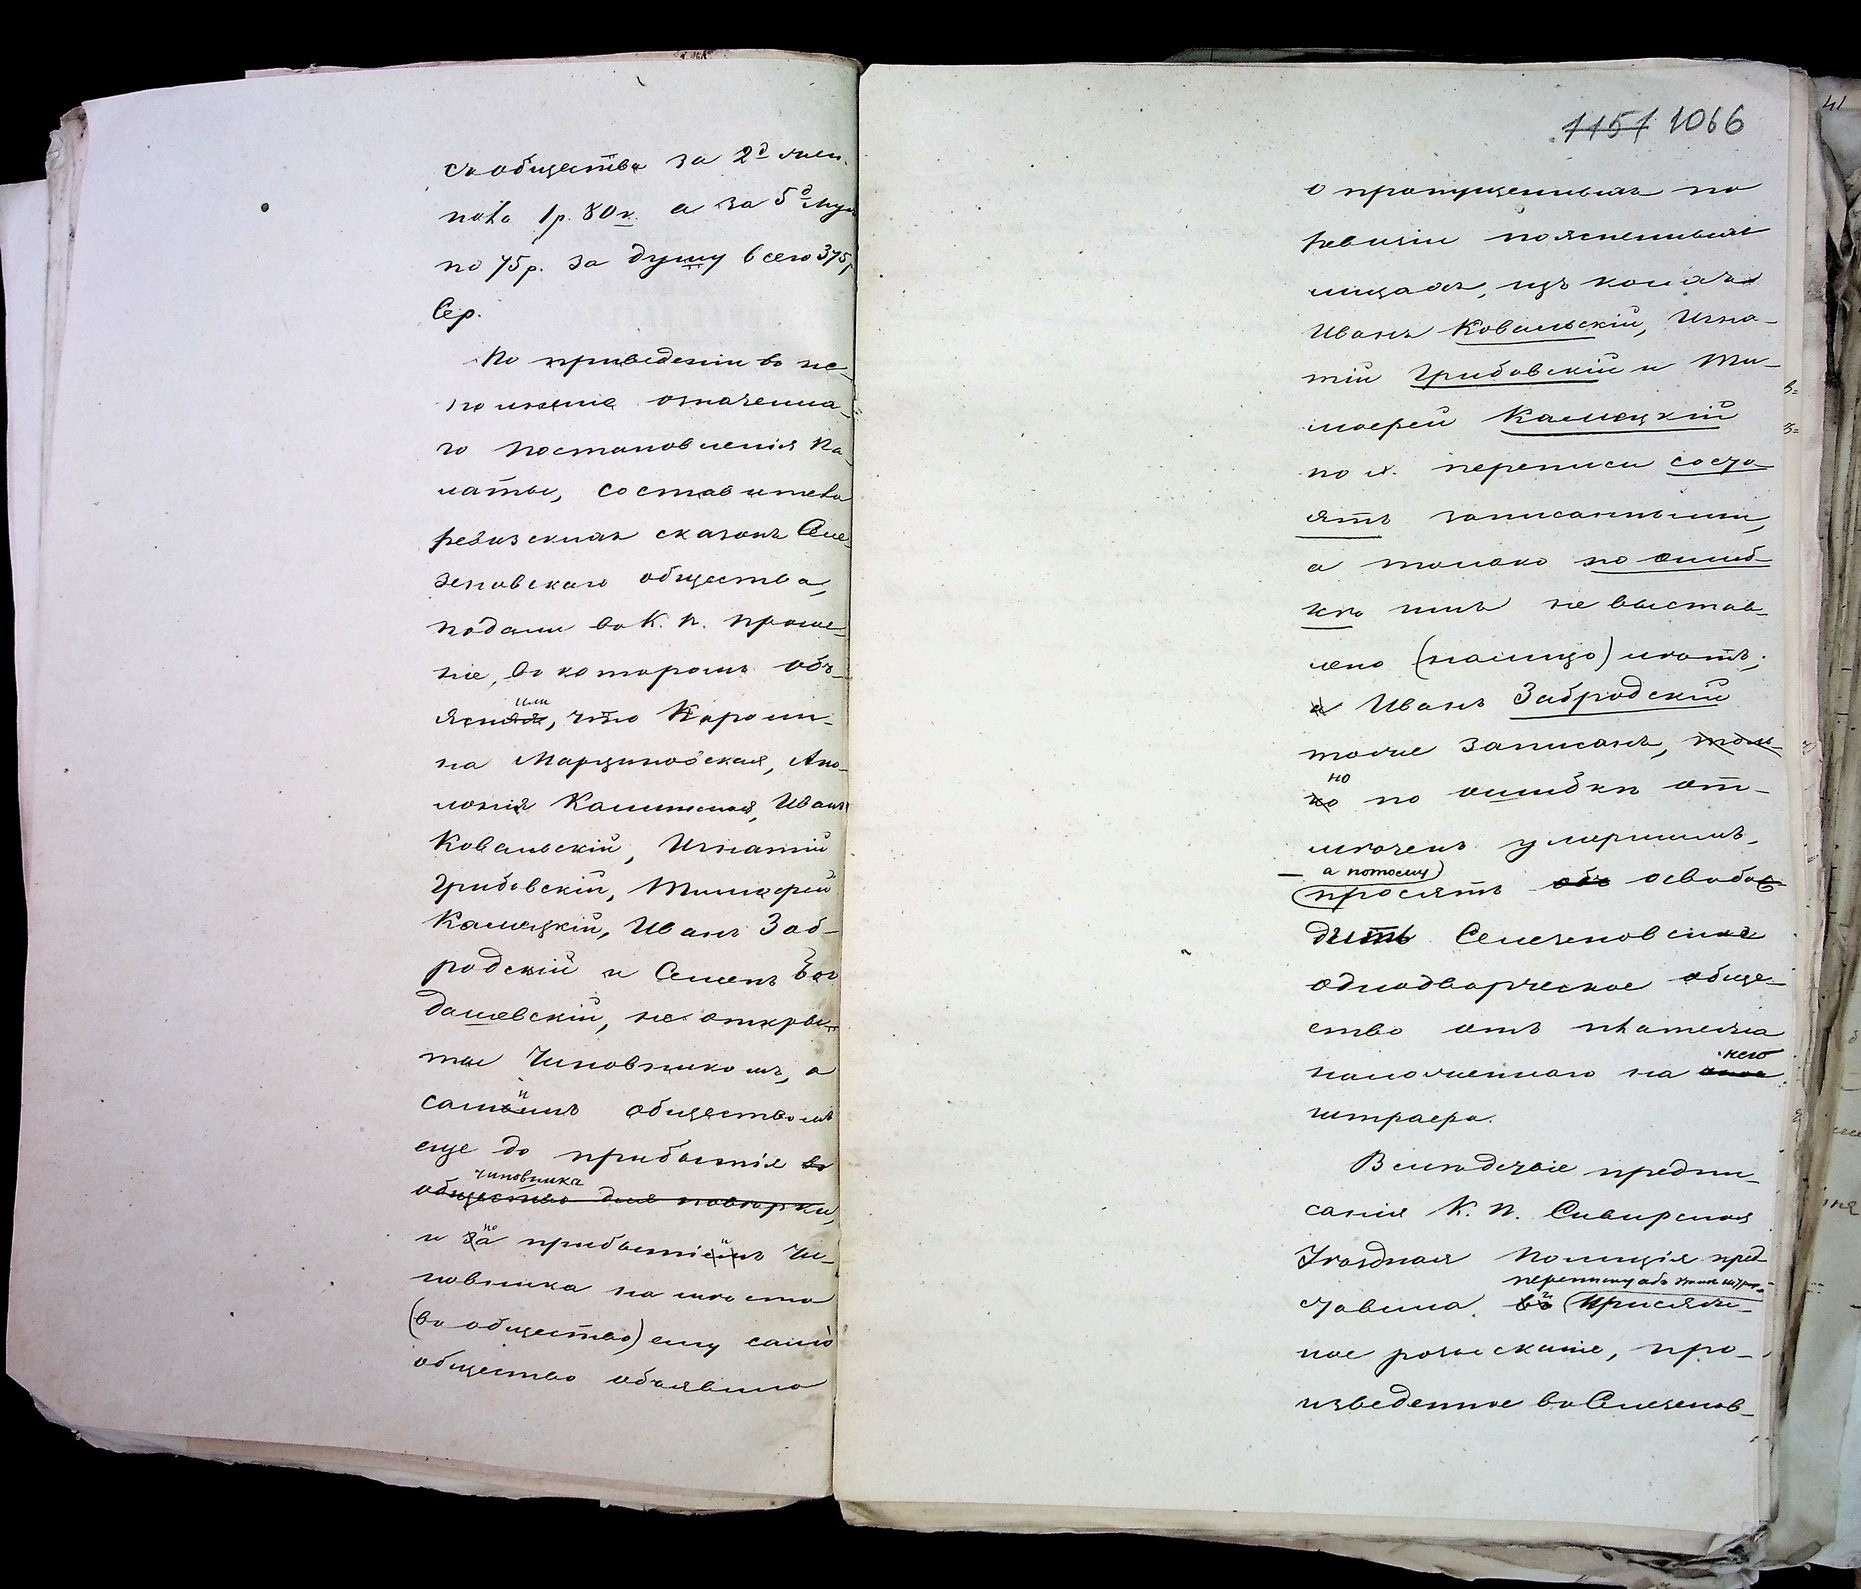 съ общества за 2<sup>д</sup> жен.
пола 1 р. 80 к. а за 5<sup>д</sup> муж.
по 75 р. за душу всего 375 р.
Сер.
По приведеніи въ ис-
полненіе означенна-
го постановленія Па-
латы, составители
ревизскихъ сказокъ Селе-
зеновскаго общества,
подали въ К. П. проше-
ніе, въ которомъ объ-
яснили, что Кароли-
на Марциновская, Апо-
лонія Калинская, Иванъ
Ковальскій, Игнатій
Грибовскій, Тимофей
Калецкій, Иванъ Заб-
родскій и Семенъ Бог
дашевскій, не откры-
ты Чиновникомъ, а
самимъ обществомъ
еще до прибытія въ
чиновника
общество для повѣрки,
и по прибытіи Чи-
новника на мѣсто
(въ общество) ему само
общество объявило
1151 1066
о пропущенныхъ по
ревизіи поясненныхъ
лицахъ, изъ коихъ
Иванъ Ковальскій, Игна-
тій Грибовскій и Ти-
мофей Калецкій
по IX. переписи состо
ятъ записанными,
а только по ошиб-
кѣ имъ не выстав-
лено (налицо) лѣтъ;
а Иванъ Забродскій
тоже записанъ, толь-
но
ко по ошибкѣ от-
мѣченъ умершимъ,
а потому
просятъ объ освобо
дить Селезеновское
однодворческое обще-
ство отъ платежа
него
наложеннаго на
штрафа.
Вслѣдствіе предпи-
санія К. П. Сквирская
Уѣздная Полиція пред-
переписку объ этомъ штраф.
ставила и присяж-
ное розысканіе, про-
изведенное въ Селезенов-